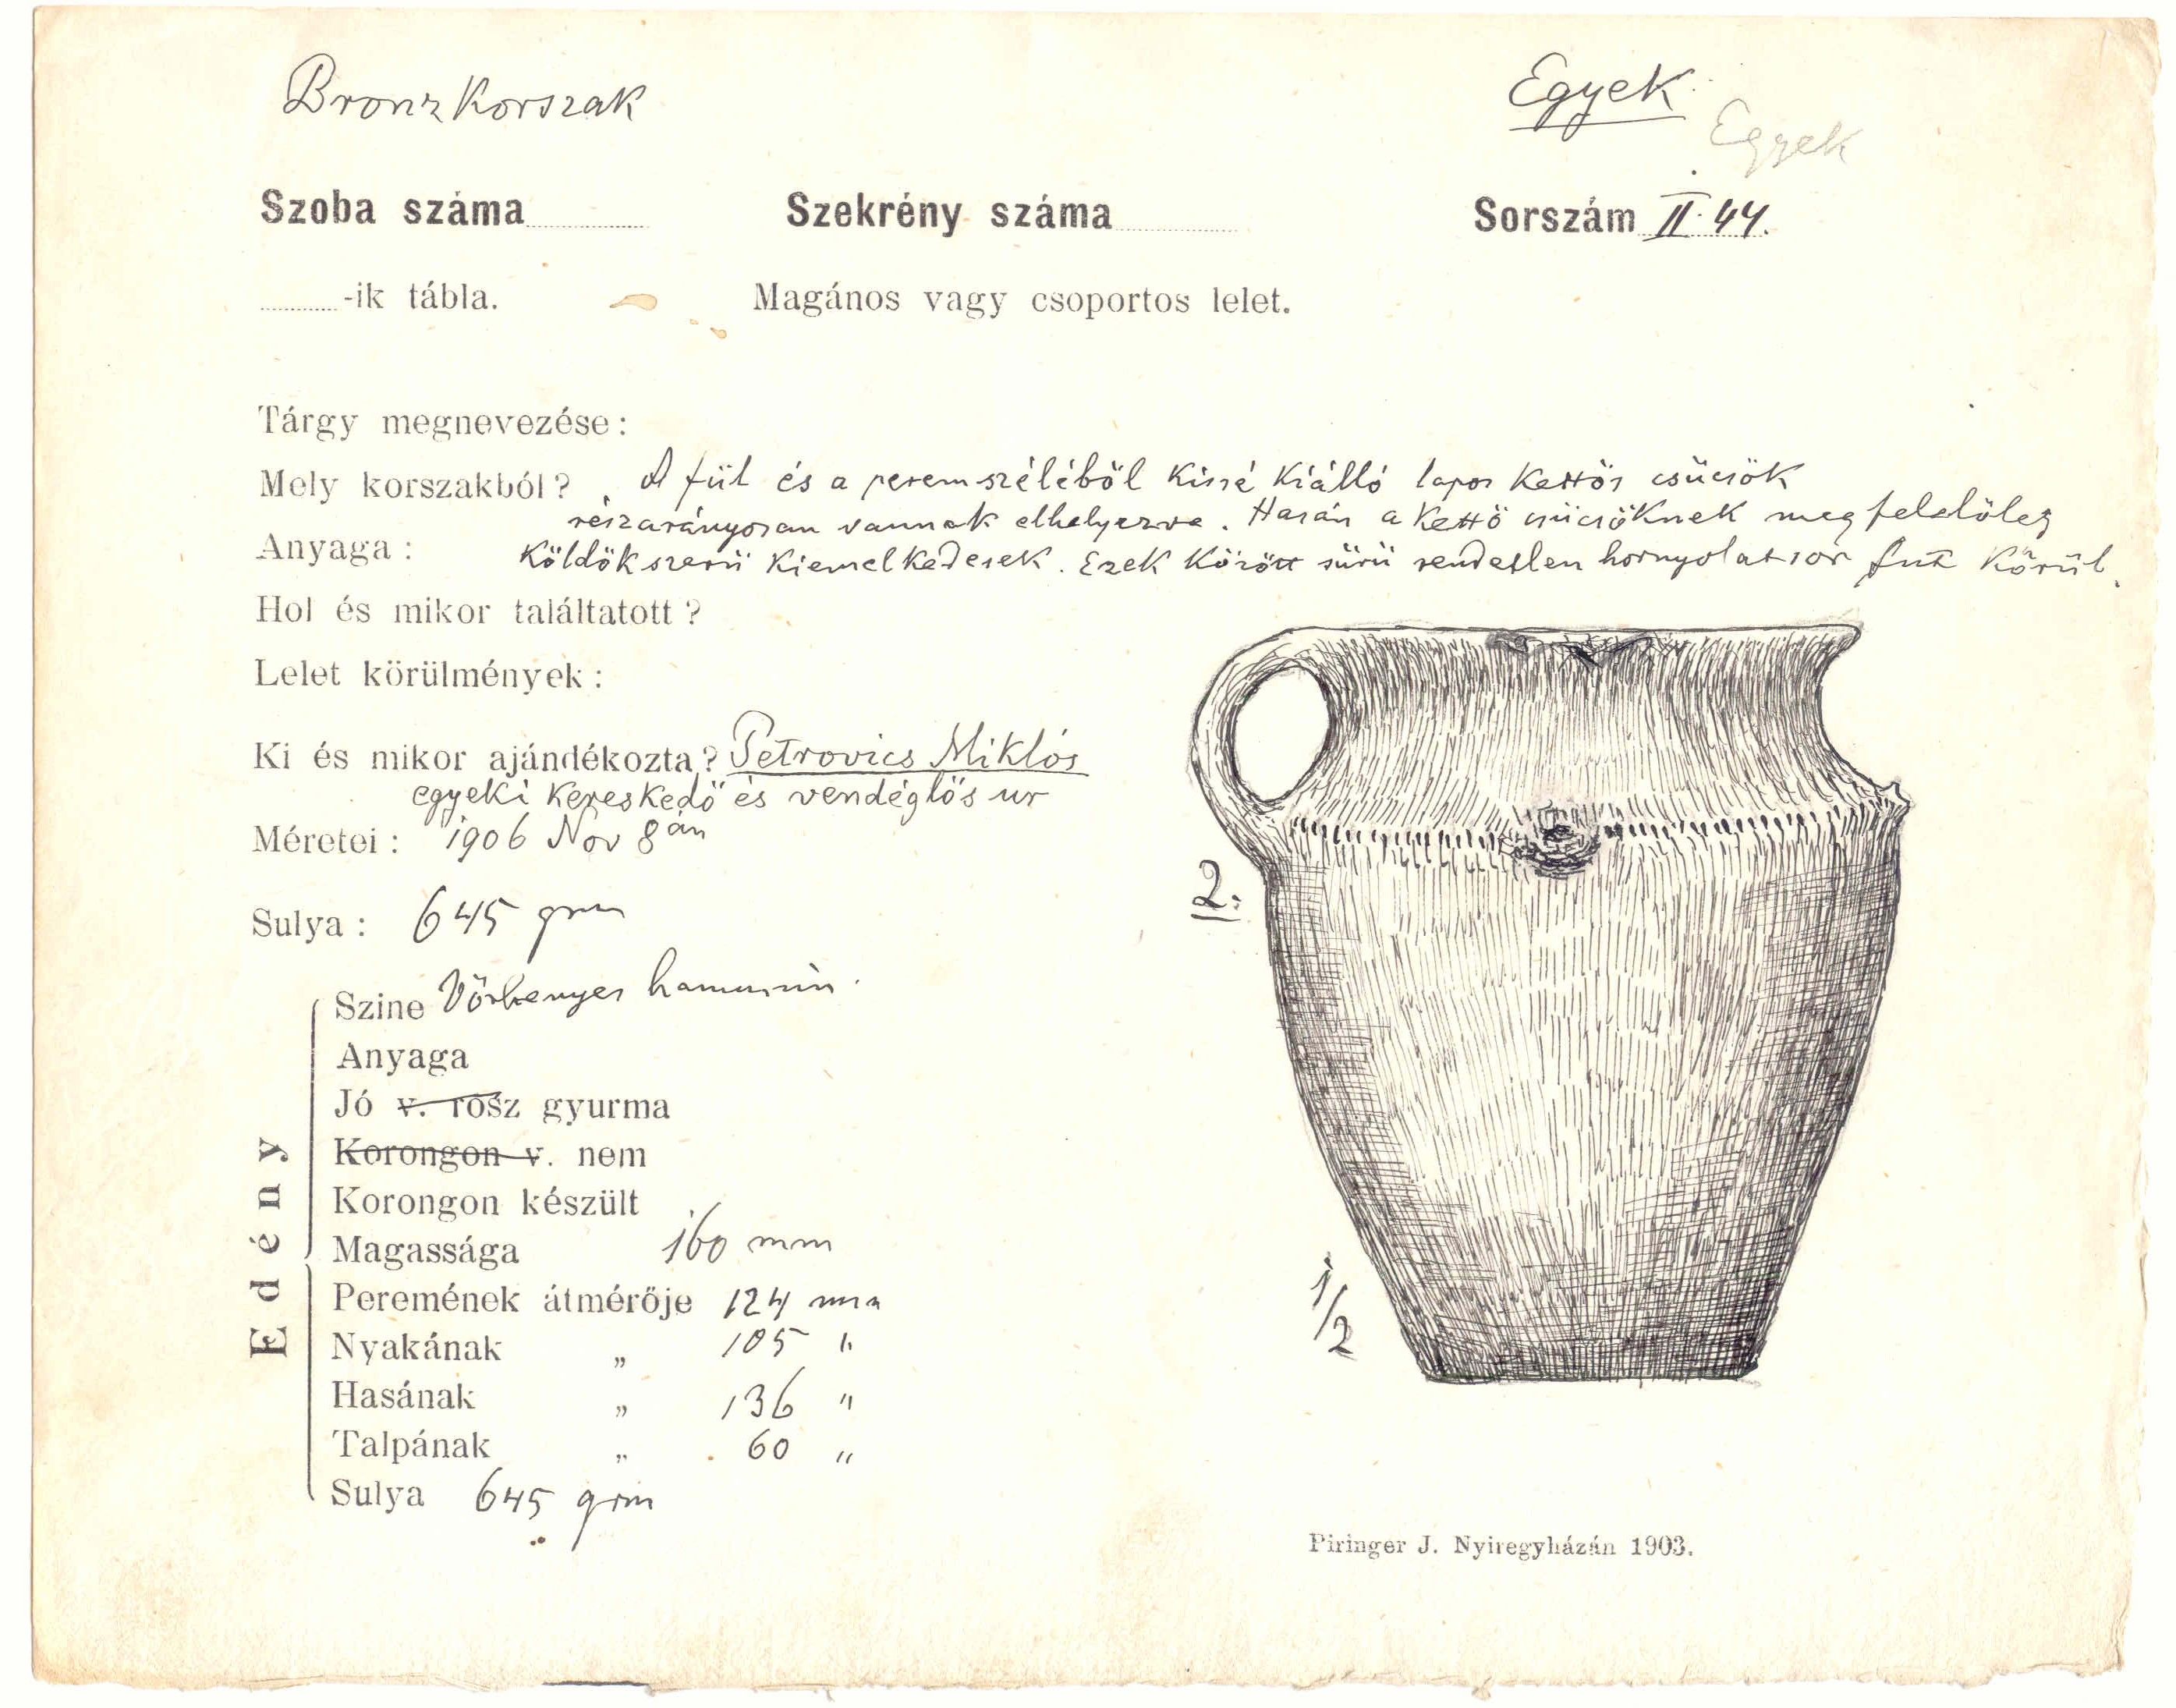 Bronzkorszak
Egyek
Egyek
Szoba száma
Szekrény száma
Sorszám II. 44.
-ik tábla.
Magános vagy csoportos lelet.
Tárgy megnevezése:
Mely korszakból?
A fül és a peremszéléböl kissé kiálló lapos kettös csücsök
részarányosan vannak elhelyezve. Hasán a kettö csücsöknek megfelelöleg
Anyaga:
köldökszerü kiemelkedesek. Ezek között sürü rendetlen hornyolatsor fut körül.
Hol és mikor találtatott?
Lelet körülmények:
Ki és mikor ajándékozta? Petrovics Miklós
egyeki kereskedő és vendéglős ur
Méretei: 1906 Nov 8án
Sulya: 645 grm
2.
Edény
Szine Vörhenyes hamuszin.
Anyaga
Jó v. rosz gyurma
Korongon v. nem
Korongon készült
Magassága 160 mm
Peremének átmérője 124 mm
Nyakának „ 105 "
Hasának „ 136 "
Talpának „ 60 "
Sulya 645 grm
1/2
Piringer J. Nyiregyházán 1903.